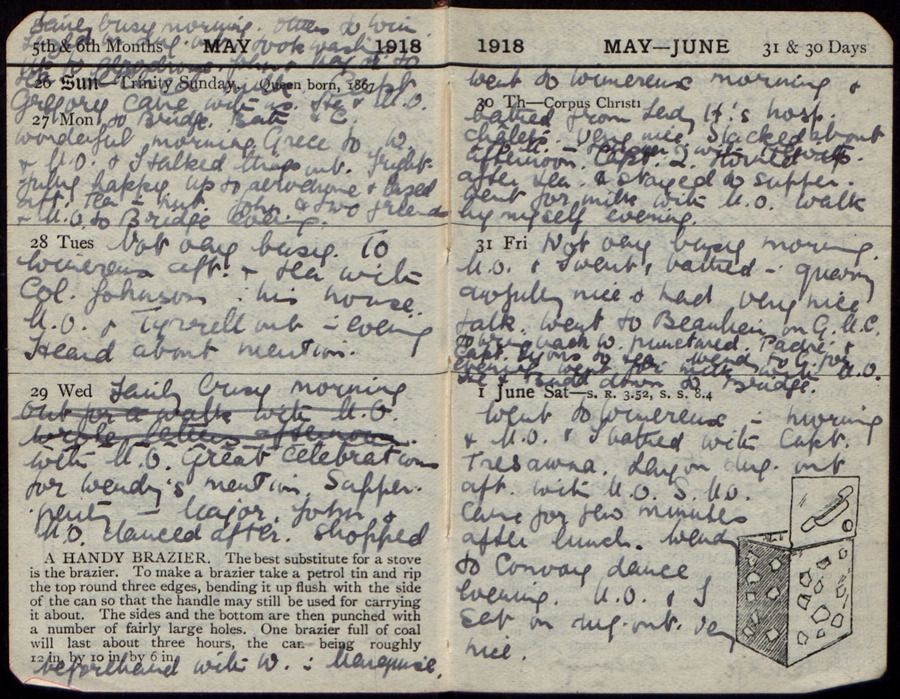 Fairly busy morning. Over to Wim.
5th & 6th Months MAY 1918
took wash
up to aerodrome. John
26 Sun—Trinity Sunday. Queen born, 1867
Gregory came with us. He & M.O.
27 Mon to Bridge. & C.
wonderful morning. Grece to W.
& M.O. & I talked things out. Fright-
fully happy. Up to aerodrome &
aft. Tea in hut. John & two friends
& M.O. to Bridge evening.
28 Tues Not very busy. To
Wimereux aft. & tea with
Col. Johnson in his house.
M.O. & Tyrrell out in evening
Heard about mention.
29 Wed Fairly busy morning
out for a walk with M.O.
wrote letters afternoon.
with M.O. Great celebrations
for Wendy's mention. Supper-
party — Major, John &
M.O. danced after. Shopped
A HANDY BRAZIER. The best substitute for a stove
is the brazier. To make a brazier take a petrol tin and rip
the top round three edges, bending it up flush with the side
of the can so that the handle may still be used for carrying
it about. The sides and the bottom are then punched with
a number of fairly large holes. One brazier full of coal
will last about three hours, the can being roughly
12 in. by 10 in. by 6 in.
beforehand with W. in Marquise.
1918 MAY—JUNE 31 & 30 Days
Went to Wimereux morning &
30 Th—Corpus Christi
bathed from Lady H's hosp.
chalet. Very nice. Slacked about
afternoon. Capt. L.
after tea & stayed to supper.
Went for milk with M.O. Walk
by myself evening.
31 Fri Not very busy morning.
M.O. & I went & bathed in quarry
awfully nice & had very nice
talk. Went to Beaulieu on G.M.C.
back W. punctured. Padre &
Capt. Lyons to tea. Wendy to G. for
evening went for milk with M.O.
He & Budd down to Bridge.
1 June Sat—S. R. 3.52, S. S. 8.4
Went to Wimereux in morning
& M.O. & I bathed with Capt.
Tresawna. Lay on dug-out
aft. with M.O. S. Mo.
came for few minutes
after lunch. Wendy
to Convoy dance
evening. M.O. & I
sat on dug-out. Very
nice.